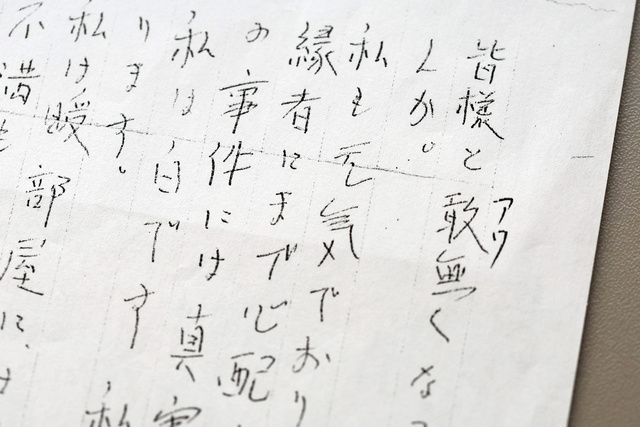 皆様と敢無くな
んか。
私も元気でおり
縁者にまで心配
の事件には真実
私は白です、私
ります。
私は暖部屋に、
不満も